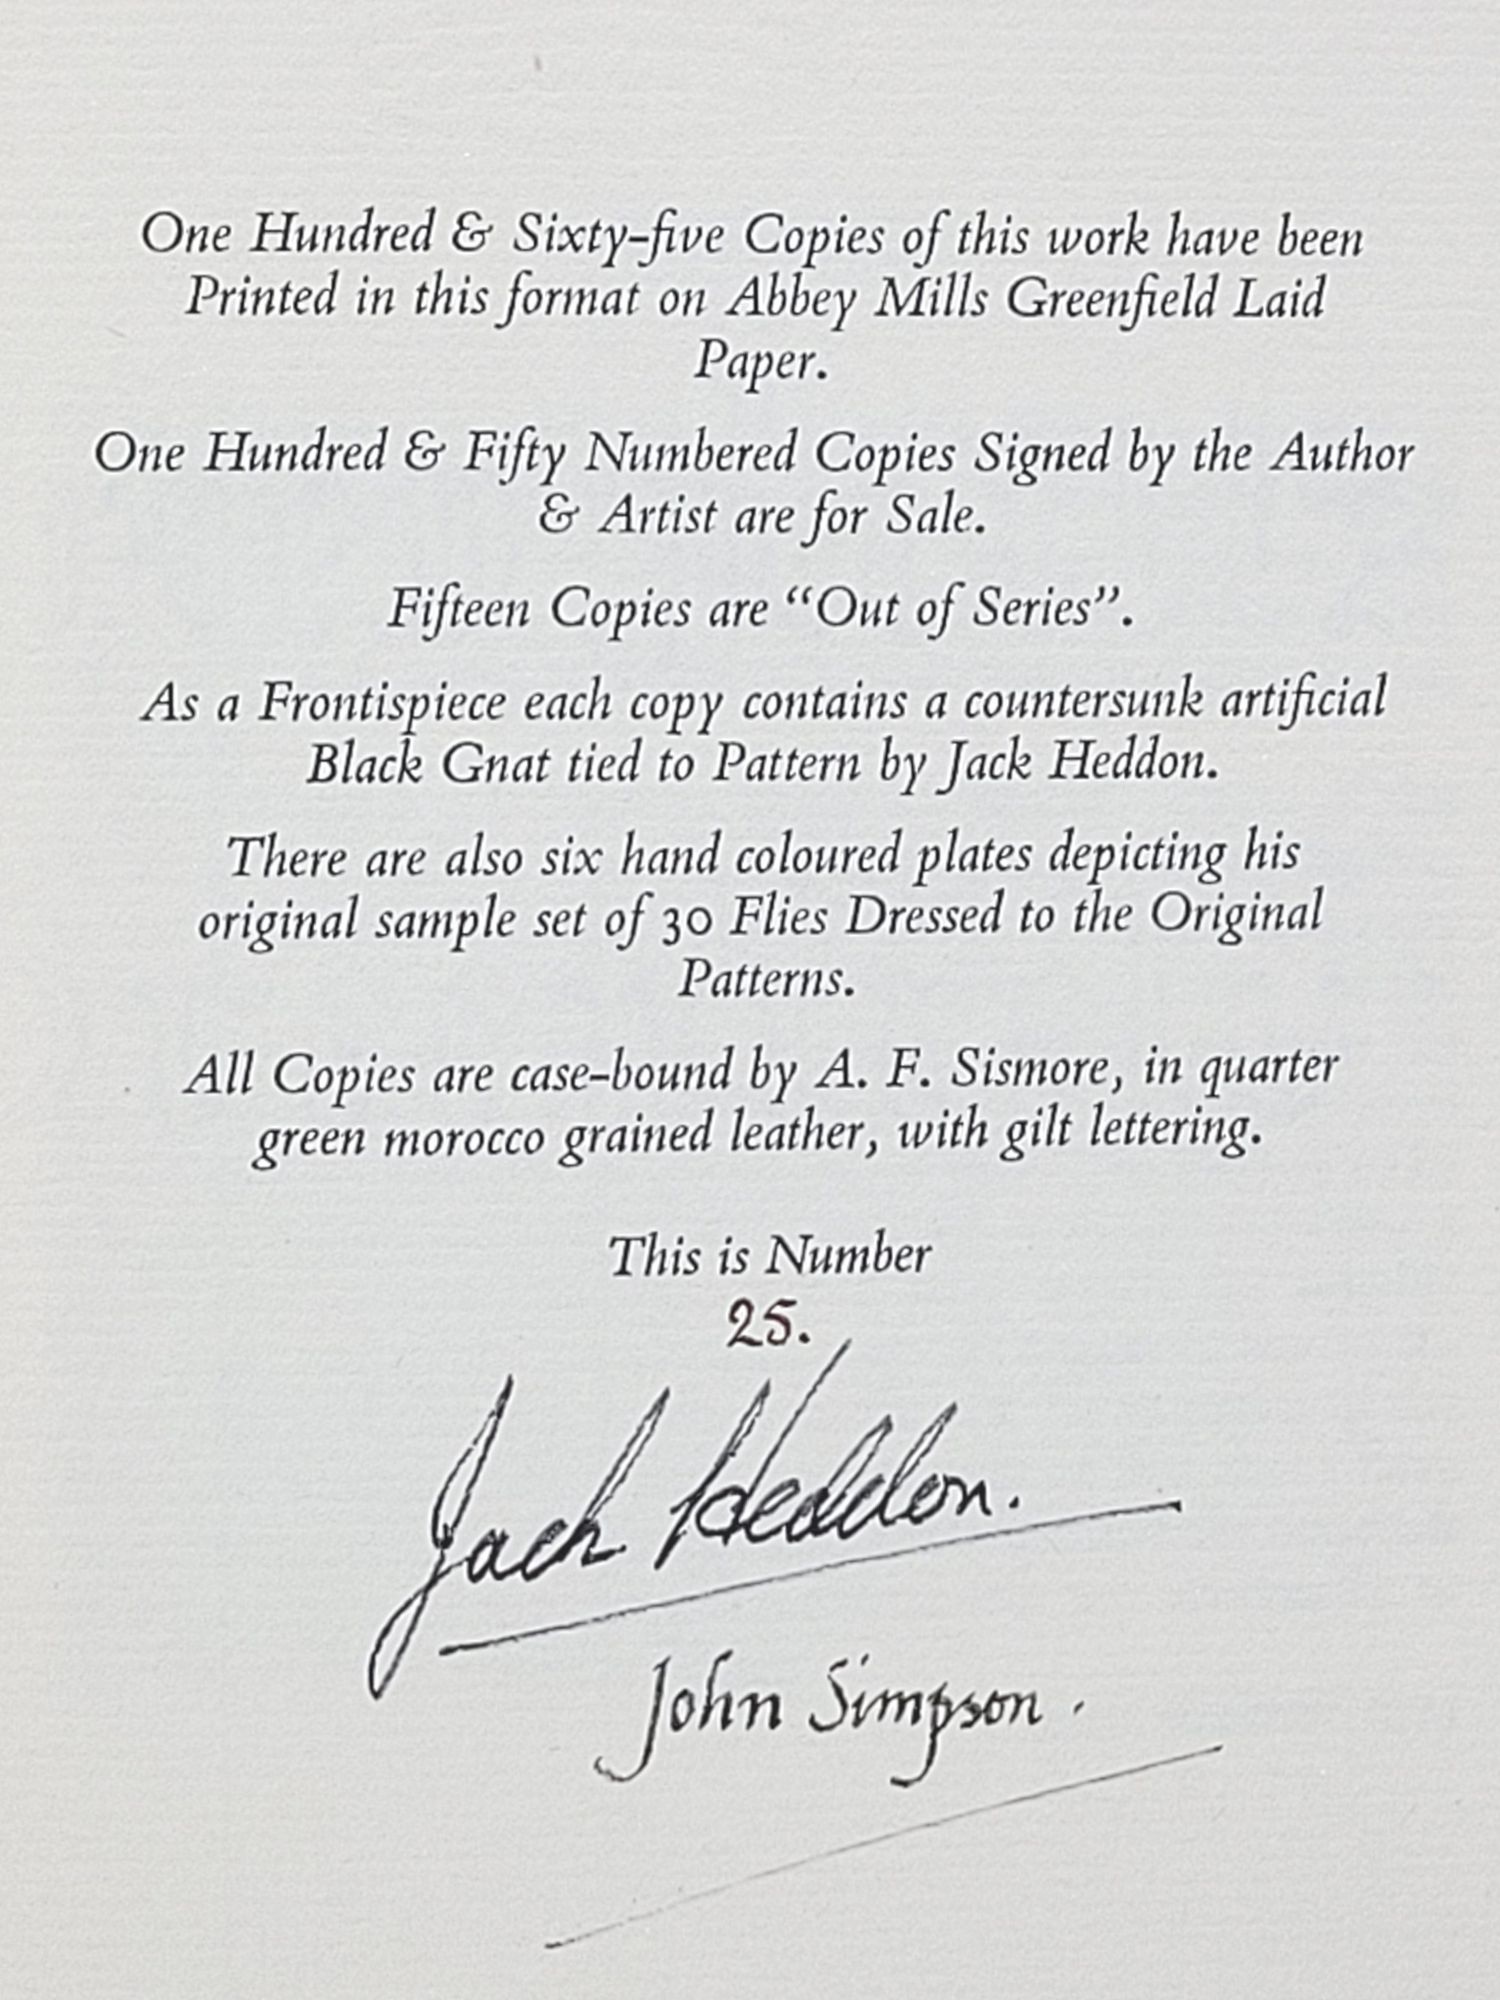 One Hundred & Sixty-five Copies of this work have been
Printed in this format on Abbey Mills Greenfield Laid
Paper.
One Hundred & Fifty Numbered Copies Signed by the Author
& Artist are for Sale.
Fifteen Copies are “Out of Series”.
As a Frontispiece each copy contains a countersunk artificial
Black Gnat tied to Pattern by Jack Heddon.
There are also six hand coloured plates depicting his
original sample set of 30 Flies Dressed to the Original
Patterns.
All Copies are case-bound by A. F. Sismore, in quarter
green morocco grained leather, with gilt lettering.
This is Number
25.
Jack Heddon.
John Simpson.